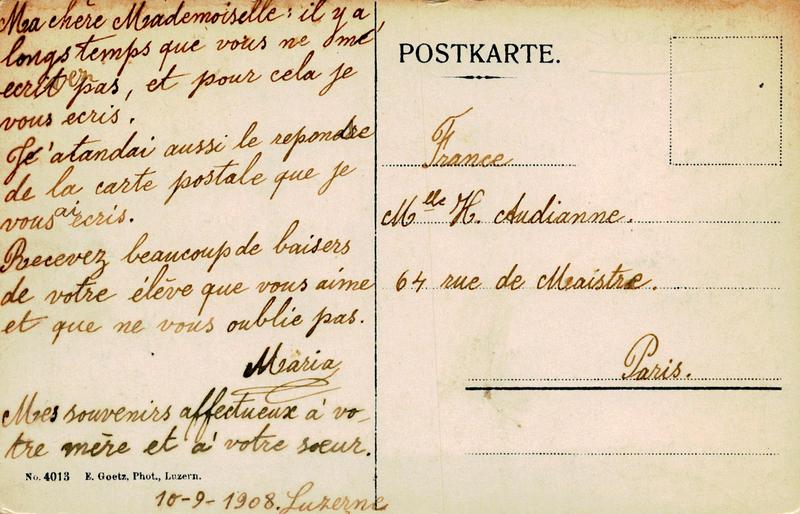 Ma chère Mademoiselle: il y a
longs temps que vous ne me
ecrit pas, et pour cela je
vous ecris.
Je'atandai aussi le repondre
de la carte postale que je
vous ai ecris.
Recevez beaucoup de baisers
de votre élève que vous aime
et que ne vous oublie pas.
Maria
Mes souvenirs affectueux à vo-
tre mère et à votre sœur.
No. 4013 E. Goetz, Phot., Luzern.
10-9-1908. Luzerne
POSTKARTE.
France
Mlle H. Audianne.
64 rue de Maistre.
Paris.